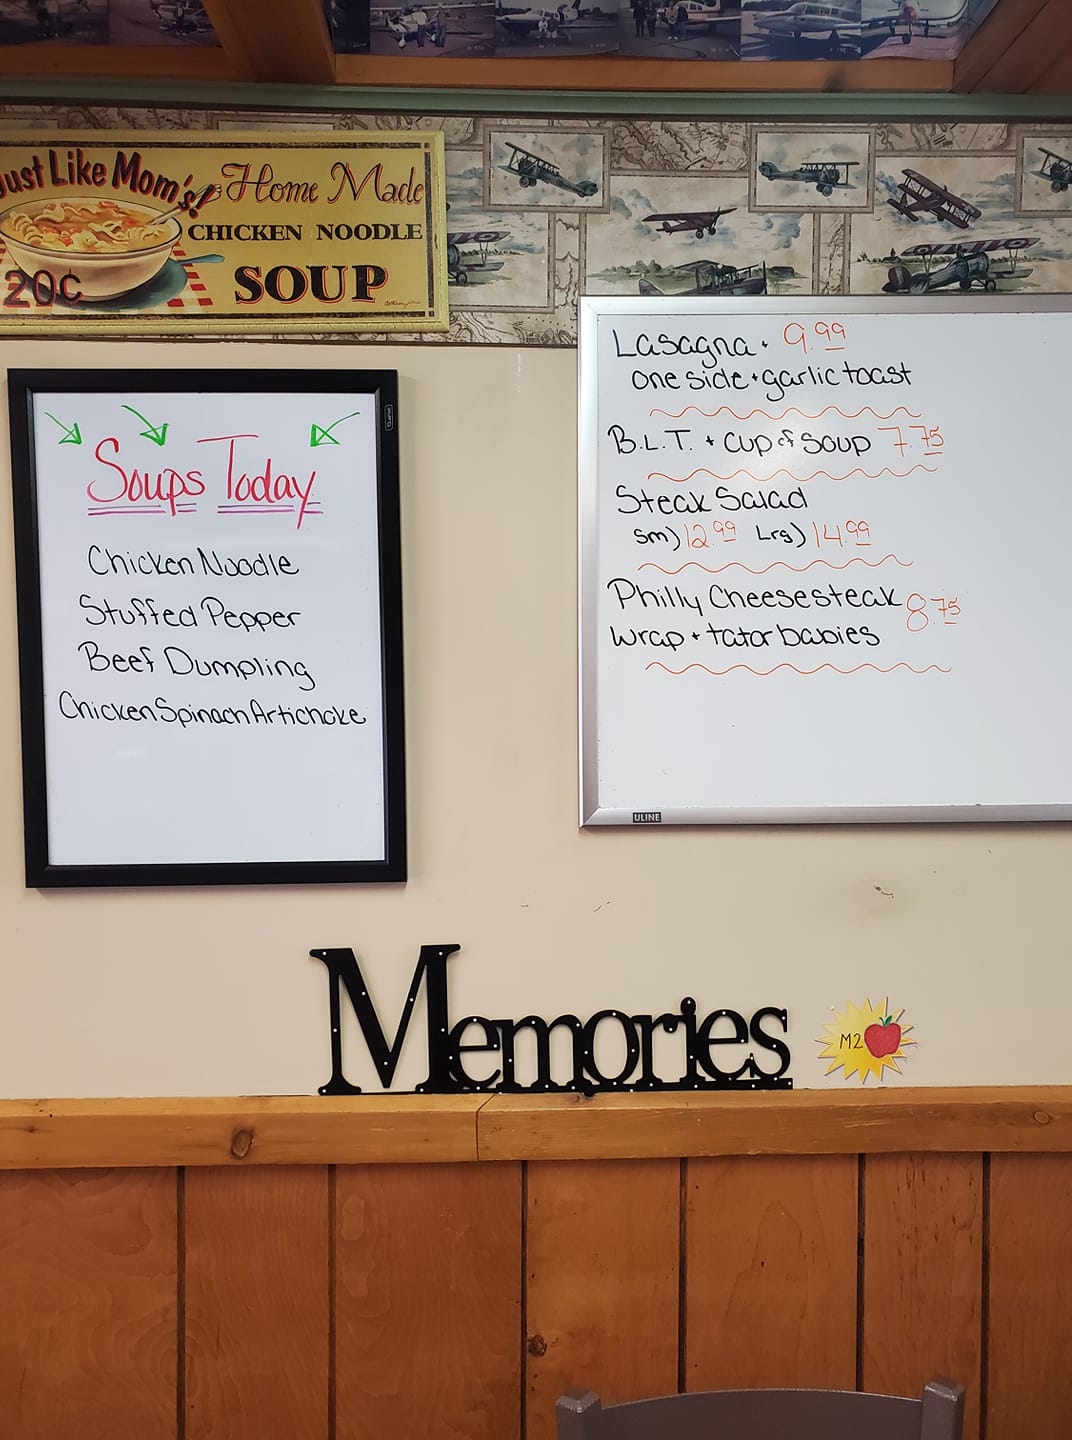 Just Like Mom's!
Home Made
CHICKEN NOODLE
SOUP
20¢
Soups Today
Chicken Noodle
Stuffed Pepper
Beef Dumpling
Chicken Spinach Artichoke
Lasagna + 9.99
one side + garlic toast
B.L.T. + cup of soup 7.75
Steak Salad
sm) 12.99 Lrg) 14.99
Philly Cheesesteak 8.75
wrap + tator babies
ULINE
Memories
M2